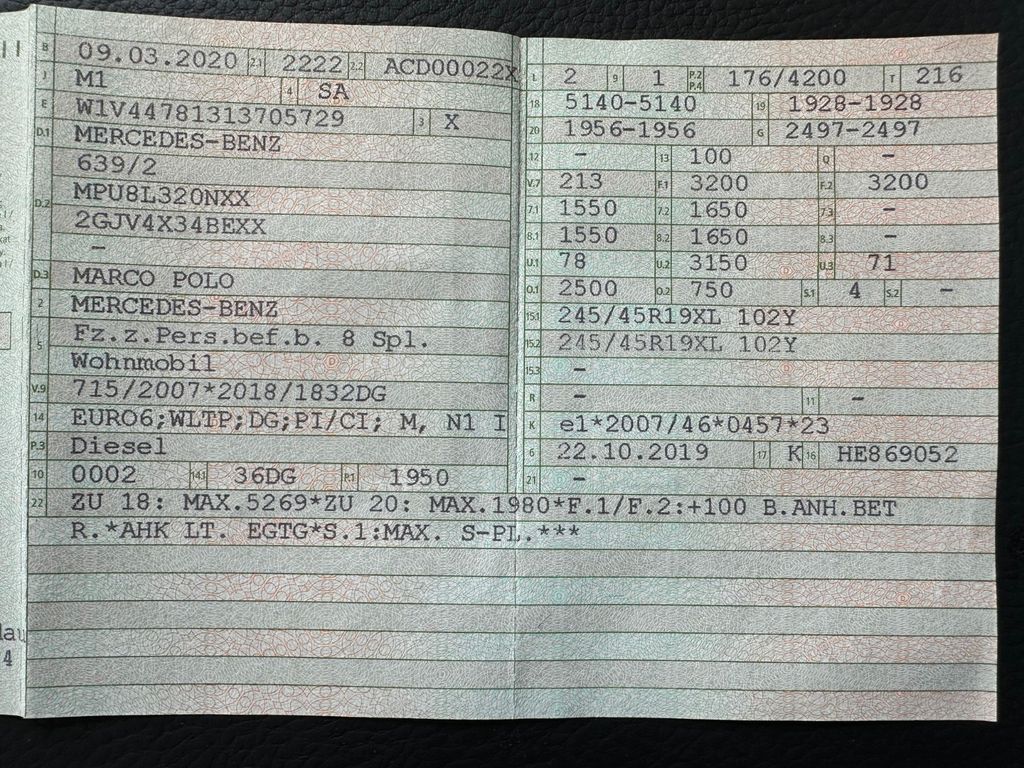 B 09.03.2020 2.1 2222 2.2 ACD00022X
J M1 4 SA
E W1V44781313705729 3 X
D.1 MERCEDES-BENZ
639/2
D.2 MPU8L320NXX
2GJV4X34BEXX
-
D.3 MARCO POLO
2 MERCEDES-BENZ
5 Fz.z.Pers.bef.b. 8 Spl.
Wohnmobil
V.9 715/2007*2018/1832DG
14 EURO6;WLTP;DG;PI/CI; M, N1 I
P.3 Diesel
10 0002 14.1 36DG P.1 1950
L 2 9 1 P.2 P.4 176/4200 T 216
18 5140-5140 19 1928-1928
20 1956-1956 G 2497-2497
12 - 13 100 Q -
V.7 213 F.1 3200 F.2 3200
7.1 1550 7.2 1650 7.3 -
8.1 1550 8.2 1650 8.3 -
U.1 78 U.2 3150 U.3 71
O.1 2500 O.2 750 S.1 4 S.2 -
15.1 245/45R19XL 102Y
15.2 245/45R19XL 102Y
15.3 -
R - 11 -
K e1*2007/46*0457*23
6 22.10.2019 17 K 16 HE869052
21 -
22 ZU 18: MAX.5269*ZU 20: MAX.1980*F.1/F.2:+100 B.ANH.BET
R.*AHK LT. EGTG*S.1:MAX. S-PL.***